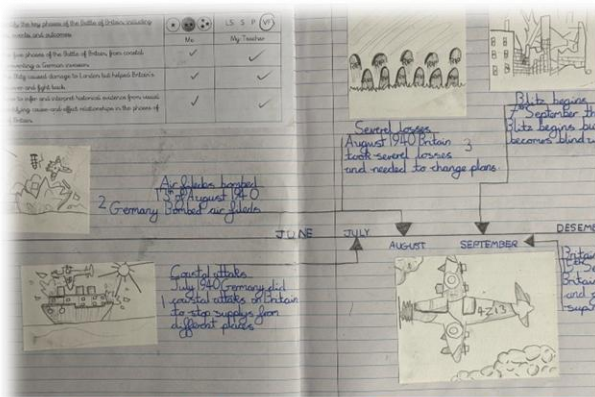 ify the key phases of the Battle of Britain, including
events and outcomes
Me
L.S. S P VF
My Teacher
five phases of the Battle of Britain, from coastal
preventing a German invasion.
Blitz caused damage to London but helped Britain's
recover and fight back.
to infer and interpret historical evidence from visual
cause-and-effect relationships in the phases of
Britain.
Air fileds bombed
13 of August 1940
2 Germany Bombed air fileds
Coastal attaks
July 1940 Germany did
1 coastal attaks on Britain
to stop supplys from
different places
JUNE
JULY
AUGUST
SEPTEMBER
DESEMB
Severel losses
August 1940 Britain 3
took severel losses
and needed to change plans.
Blitz begins
7th September th
Blitz begins
becomes blind
4213
Britain
Britain
and